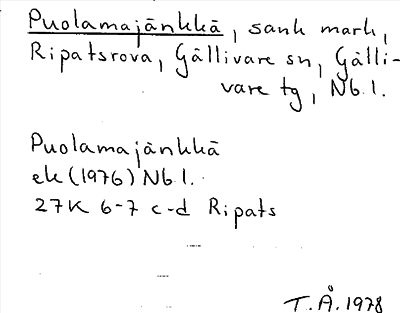 Puolamajänkkä, sank mark,
Ripatsrova, Gällivare sn, Gälli-
vare tg, Nb. l.
Puolamajänkkä
ek (1976) Nb l.
27K 6-7 c-d Ripats
T. Å. 1978